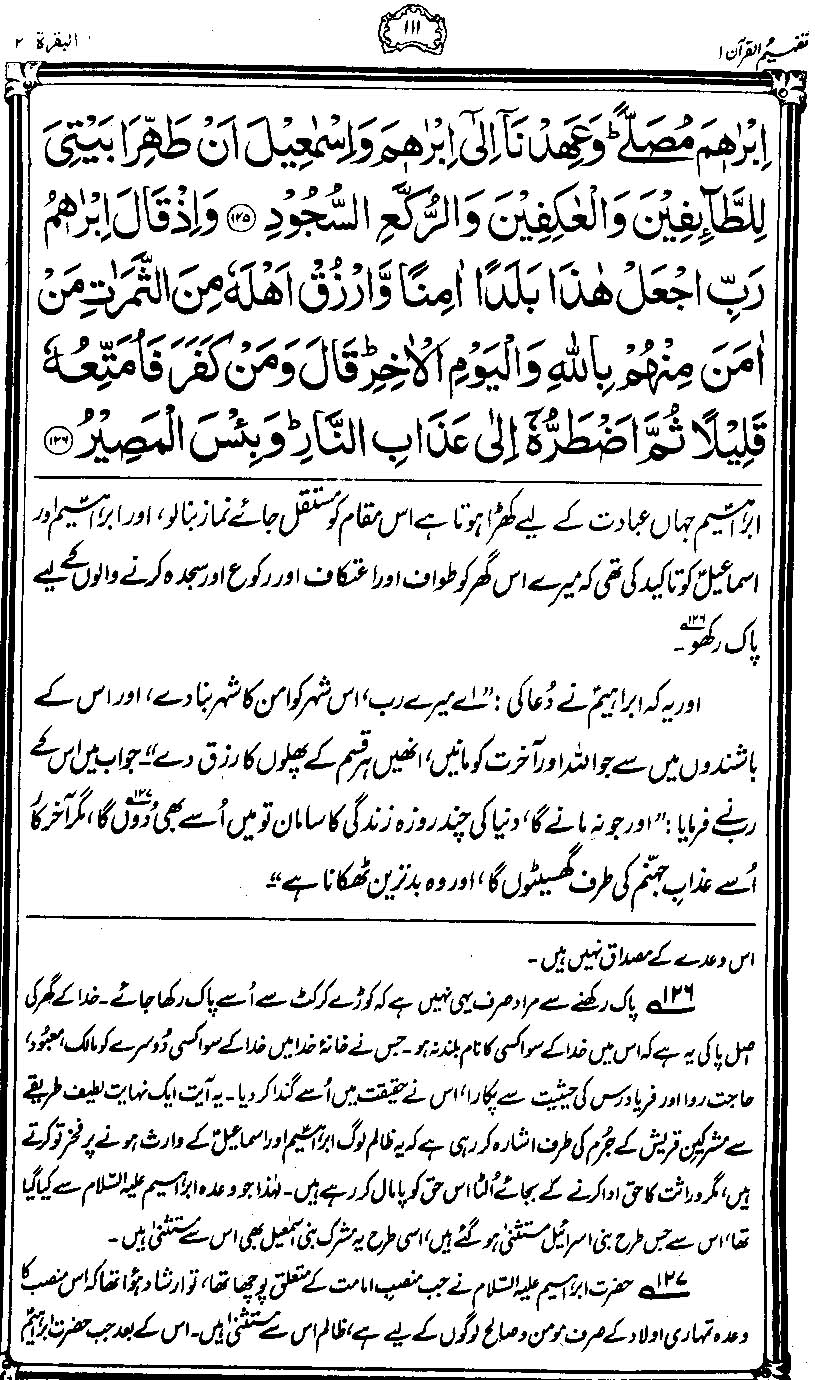 تفہیم القرآن ۱
۱۱۱
البقرۃ ۲
اِبْرٰهٖمَ مُصَلًّىؕ وَعَهِدْنَاۤ اِلٰۤى اِبْرٰهٖمَ وَاِسْمٰعِيْلَ اَنْ طَهِّرَا بَيْتِىَ
لِلطَّآئِفِيْنَ وَالْعٰكِفِيْنَ وَالرُّكَّعِ السُّجُوْدِ ﴿۱۲۵﴾ وَاِذْ قَالَ اِبْرٰهٖمُ
رَبِّ اجْعَلْ هٰذَا بَلَدًا اٰمِنًا وَّارْزُقْ اَهْلَهٗ مِنَ الثَّمَرٰتِ مَنْ
اٰمَنَ مِنْهُمْ بِاللّٰهِ وَالْيَوْمِ الْاٰخِرِؕ قَالَ وَمَنْ كَفَرَ فَاُمَتِّعُهٗ
قَلِيْلًا ثُمَّ اَضْطَرُّهٗۤ اِلٰى عَذَابِ النَّارِؕ وَبِئْسَ الْمَصِيْرُ ﴿۱۲۶﴾
ابراہیم جہاں عبادت کے لیے کھڑا ہوتا ہے اس مقام کو مستقل جائے نماز بنا لو، اور ابراہیم اور
اسماعیل کو تاکید کی تھی کہ میرے اس گھر کو طواف اور اعتکاف اور رکوع اور سجدہ کرنے والوں کے لیے
پاک رکھو ۱۲۶۔
اور یہ کہ ابراہیمؑ نے دُعا کی: ”اے میرے رب، اس شہر کو امن کا شہر بنا دے، اور اس کے
باشندوں میں سے جو اللہ اور آخرت کو مانیں، انھیں ہر قسم کے پھلوں کا رزق دے“۔ جواب میں اس کے
رب نے فرمایا: ”اور جو نہ مانے گا، دنیا کی چند روزہ زندگی کا سامان تو میں اُسے بھی دُوں گا ۱۲۷، مگر آخر کار
اُسے عذابِ جہنّم کی طرف گھسیٹوں گا، اور وہ بدترین ٹھکانا ہے“۔
اس وعدے کے مصداق نہیں ہیں۔
۱۲۶ پاک رکھنے سے مراد صرف یہی نہیں ہے کہ کوڑے کرکٹ سے اُسے پاک رکھا جائے۔ خدا کے گھر کی
اصل پاکی یہ ہے کہ اس میں خدا کے سوا کسی کا نام بلند نہ ہو۔ جس نے خانۂ خدا میں خدا کے سوا کسی دُوسرے کو مالک، معبُود،
حاجت روا اور فریاد رس کی حیثیت سے پکارا، اس نے حقیقت میں اُسے گندا کر دیا۔ یہ آیت ایک نہایت لطیف طریقے
سے مشرکینِ قریش کے جُرم کی طرف اشارہ کر رہی ہے کہ یہ ظالم لوگ ابراہیم اور اسماعیلؑ کے وارث ہونے پر فخر تو کرتے
ہیں، مگر وراثت کا حق ادا کرنے کے بجائے اُلٹا اس حق کو پامال کر رہے ہیں۔ لہٰذا جو وعدہ ابراہیم علیہ السّلام سے کیا گیا
تھا، اس سے جس طرح بنی اسرائیل مستثنیٰ ہو گئے ہیں، اسی طرح یہ مشرک بنی اسمٰعیل بھی اس سے مستثنیٰ ہیں۔
۱۲۷ حضرت ابراہیم علیہ السّلام نے جب منصبِ امامت کے متعلق پوچھا تھا، تو ارشاد ہؤا تھا کہ اس منصب کا
وعدہ تمہاری اولاد کے صرف مومن و صالح لوگوں کے لیے ہے، ظالم اس سے مستثنیٰ ہیں۔ اس کے بعد جب حضرت ابراہیمؑ